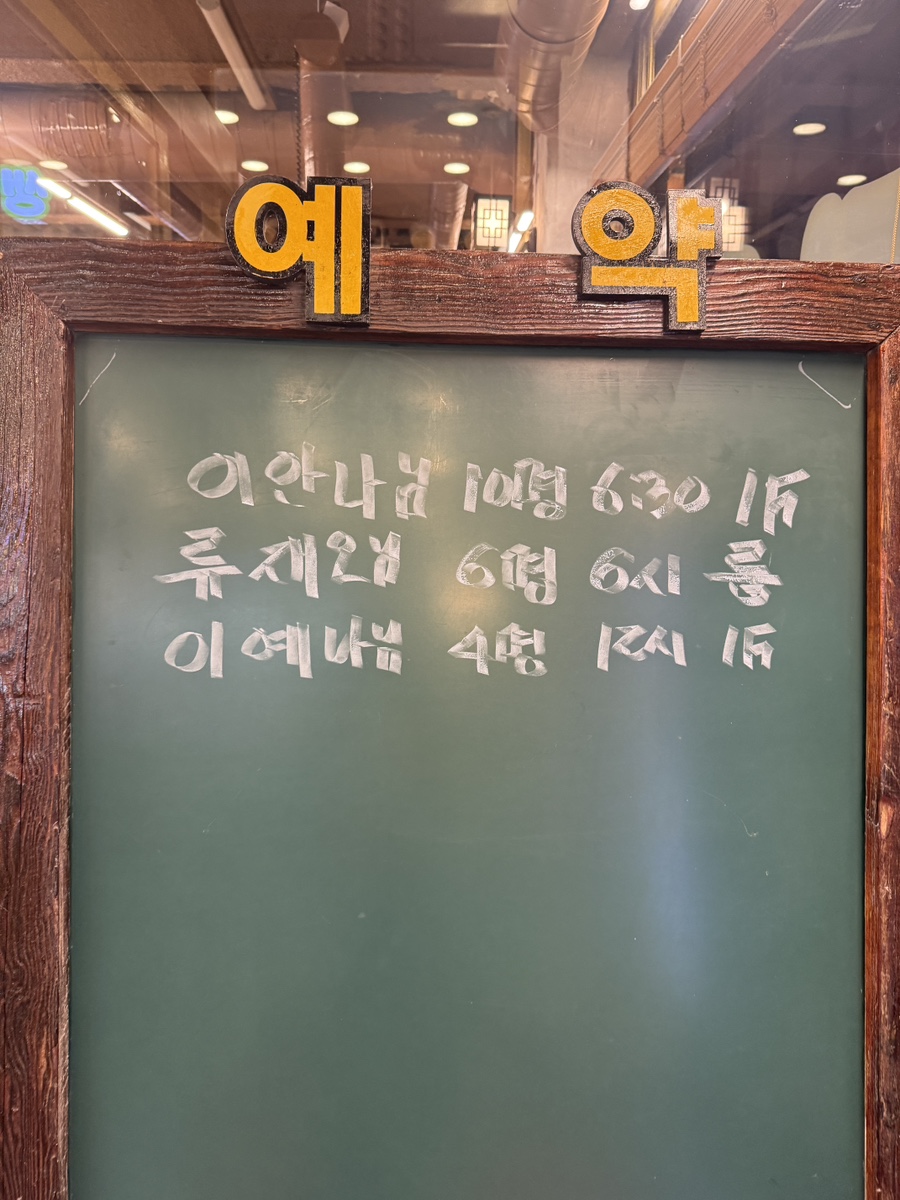 예 약
이안나님 10명 6:30 1층
류재오님 6명 6시 룸
이예나님 4명 12시 1층